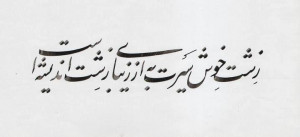 زشت خوش سیرت به از زیبا زشت اندیشه است